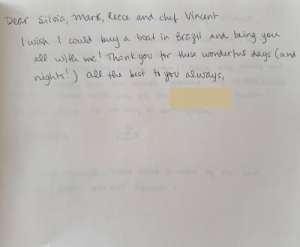 Dear Silvia, Mark, Reece and chef Vincent
I wish I could buy a boat in Brazil and bring you
all with me! Thank you for these wonderful days (and
nights!) All the best to you always,